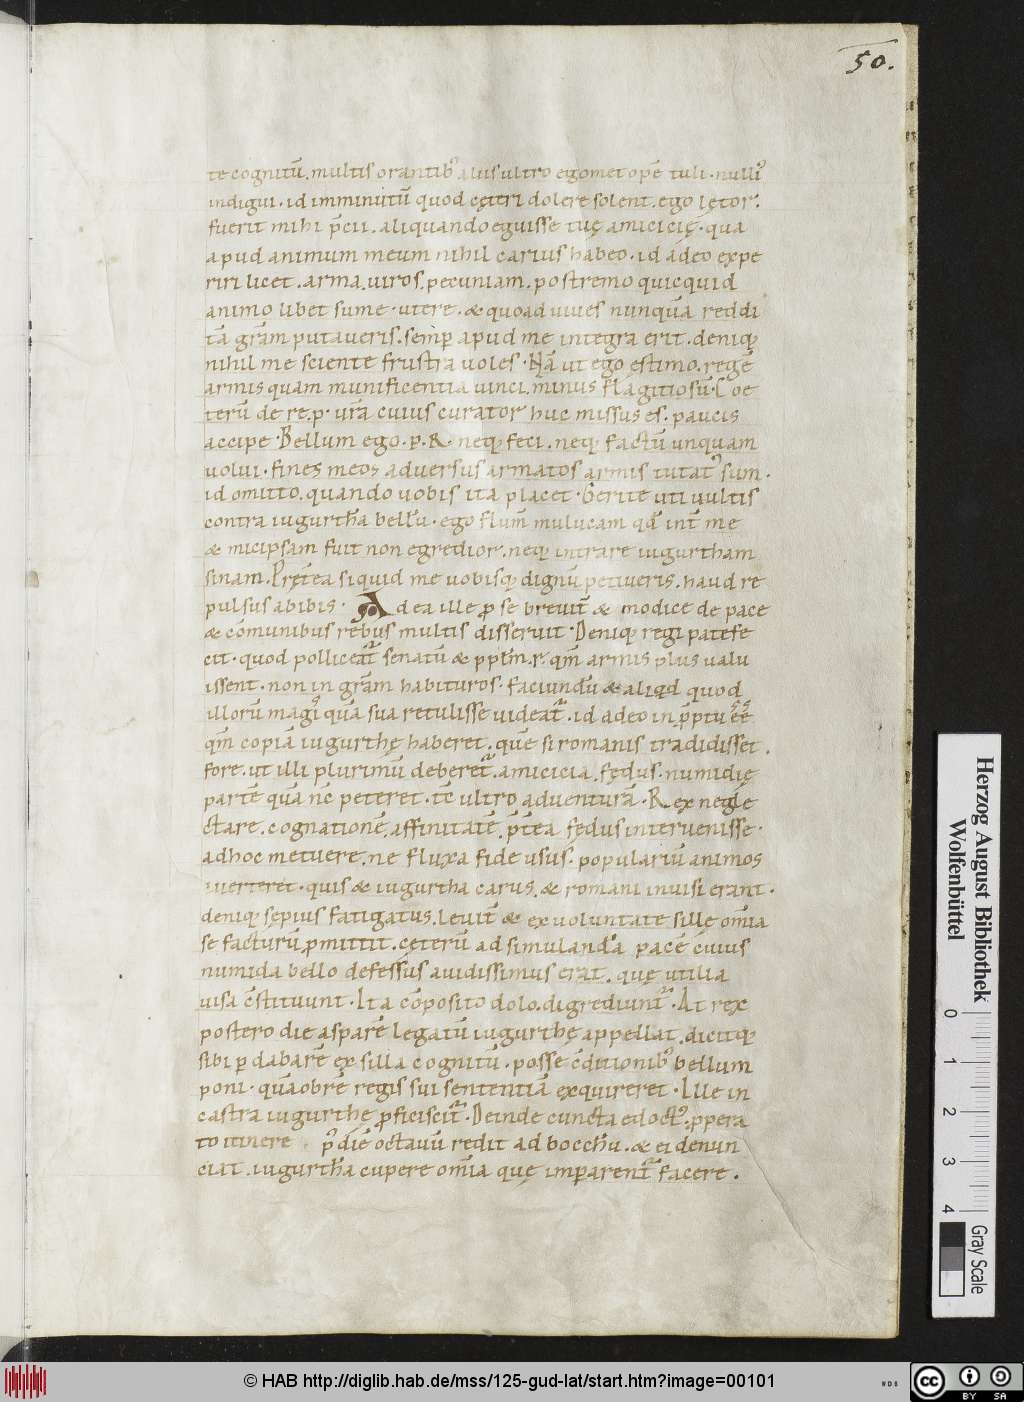 50.
te cognitū. multis orantib᷒ aliis ultro egomet opē tuli. nulli᷒
indigui. id imminutū quod cęteri dolere solent. ego lętor.
fuerit mihi p̄cii. aliquando eguisse tuę amicicię. qua
apud animum meum nihil carius habeo. id adeo expe
riri licet. arma. uiros. pecuniam. postremo quicquid
animo libet sume. utere. & quoad uiues nunquā reddi
tā gr̄am putaueris. semp̄ apud me integra erit. deniq;
nihil me sciente frustra uoles. Nā ut ego estimo. regē
armis quam munificentia uinci. minus flagitiosū. Coe
terū de re. p. ur̄a cuius curator huc missus es. paucis
accipe. Bellum ego. p. R. neq; feci. neq; factū unquam
uolui. fines meos aduersus armatos armis tutat᷒ sum.
id omitto. quando uobis ita placet. Gerite uti uultis
contra iugurtha bellū. ego flum̄ mulucam qd̄ int̄ me
& micipsam fuit non egredior. neq; intrare iugurtham
sinam. Pręt̄ea siquid me uobisq; dignū petiueris. haud re
pulsus abibis. Ad ea ille p se breuit̄ & modice de pace
& cōmunibus rebus multis disseruit. Deniq; regi patefe
cit. quod polliceat᷑ senatū & pplm̄. r. qm̄ armis plus ualu
issent. non in gr̄am habituros. faciundū & aliqd quod
illorū magi᷒ quā sua retulisse uideat᷑. id adeo in p̄ptu eē
qm̄ copiā iugurthę haberet. quē si romanis tradidisset.
fore. ut illi plurimū deberet᷑. amicicia. fędus. numidię
partē quā nc̄ peteret. tc̄ ultro aduenturā. Rex negle
ctare. cognationē. affinitatē. p̄t̄ea fedus interuenisse.
adhoc metuere. ne fluxa fide usus. populariū animos
auerteret. quis & iugurtha carus. & romani inuisi erant.
deniq; sępius fatigatus. leuit̄ & ex uoluntate sillę om̄ia
se facturū pmittit. cęterū ad simulanda pacē cuius
numida bello defessus auidissimus erat. quę utilia
uisa c̄stituunt. Ita cōposito dolo. digrediunt᷑. At rex
postero die asparē legatū iugurthę appellat. dicitq;
sibi p dabarē ex silla cognitū. posse c̄ditionib᷒ bellum
poni. quāobrē regis sui sententiā exquireret. Ille in
castra iugurthę pficiscit᷑. Deinde cuncta edoct᷒. ppera
to itinere p᷒ diē octauū redit ad bocchū. & ei denun
ciat. iugurthā cupere om̄ia quę imparent᷑ facere.
Herzog August Bibliothek
Wolfenbüttel
0 1 2 3 4
Gray Scale
© HAB http://diglib.hab.de/mss/125-gud-lat/start.htm?image=00101
WDB
cc BY SA